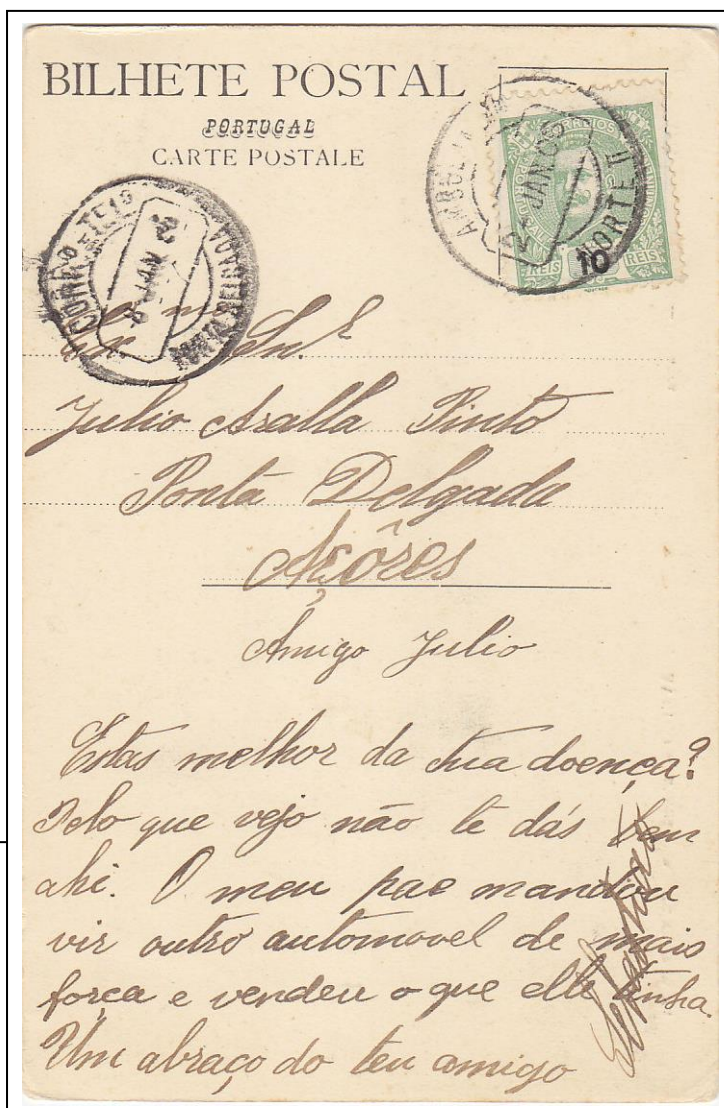 BILHETE POSTAL
PORTUGAL
CARTE POSTALE
2 JAN 06
NORTE II
CORREIOS
REIS 10 REIS
JAN
PONTA DELGADA
Snr.
Julio Aralla Pinto
Ponta Delgada
Açôres
Amigo Julio
Estas melhor da tua doença?
Pelo que vejo não te dás bem
ahi. O meu pae mandou
vir outro automovel de mais
força e vendeu o que elle tinha.
Um abraço do teu amigo